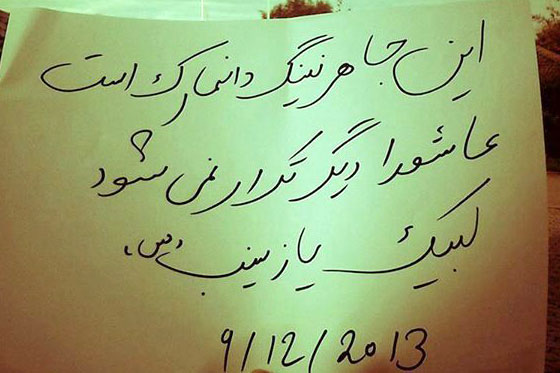 این جا هرنینگ دانمارک است
عاشورا دیگر تکرار نمی شود
لبیک یا زینب (س)
9/12/2013